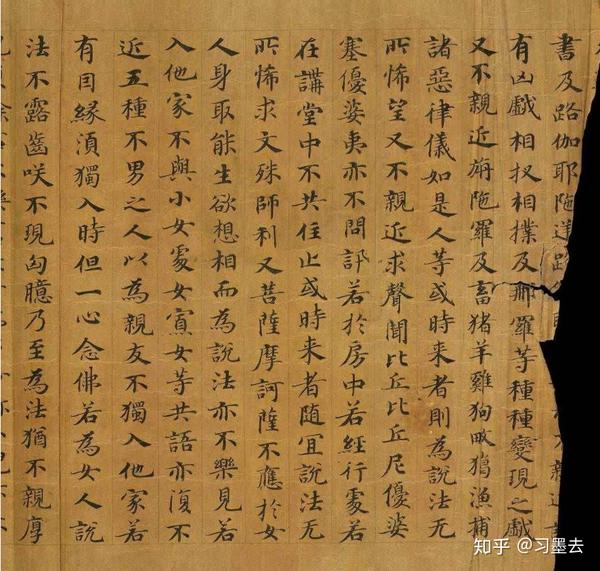 書及路伽耶陁逆路
有凶戲相扠相撲及那羅等種種變現之戲
又不親近旃陁羅及畜猪羊雞狗畋獵漁捕
諸惡律儀如是人等或時来者則為說法无
所悕望又不親近求聲聞比丘比丘尼優婆
塞優婆夷亦不問訊若於房中若經行處若
在講堂中不共住止或時来者随宜說法无
所悕求文殊師利又菩薩摩訶薩不應於女
人身取能生欲想相而為說法亦不樂見若
入他家不與小女處女寡女等共語亦復不
近五種不男之人以為親友不獨入他家若
有因緣須獨入時但一心念佛若為女人說
法不露齒咲不現匈臆乃至為法猶不親厚
知乎 @习墨去